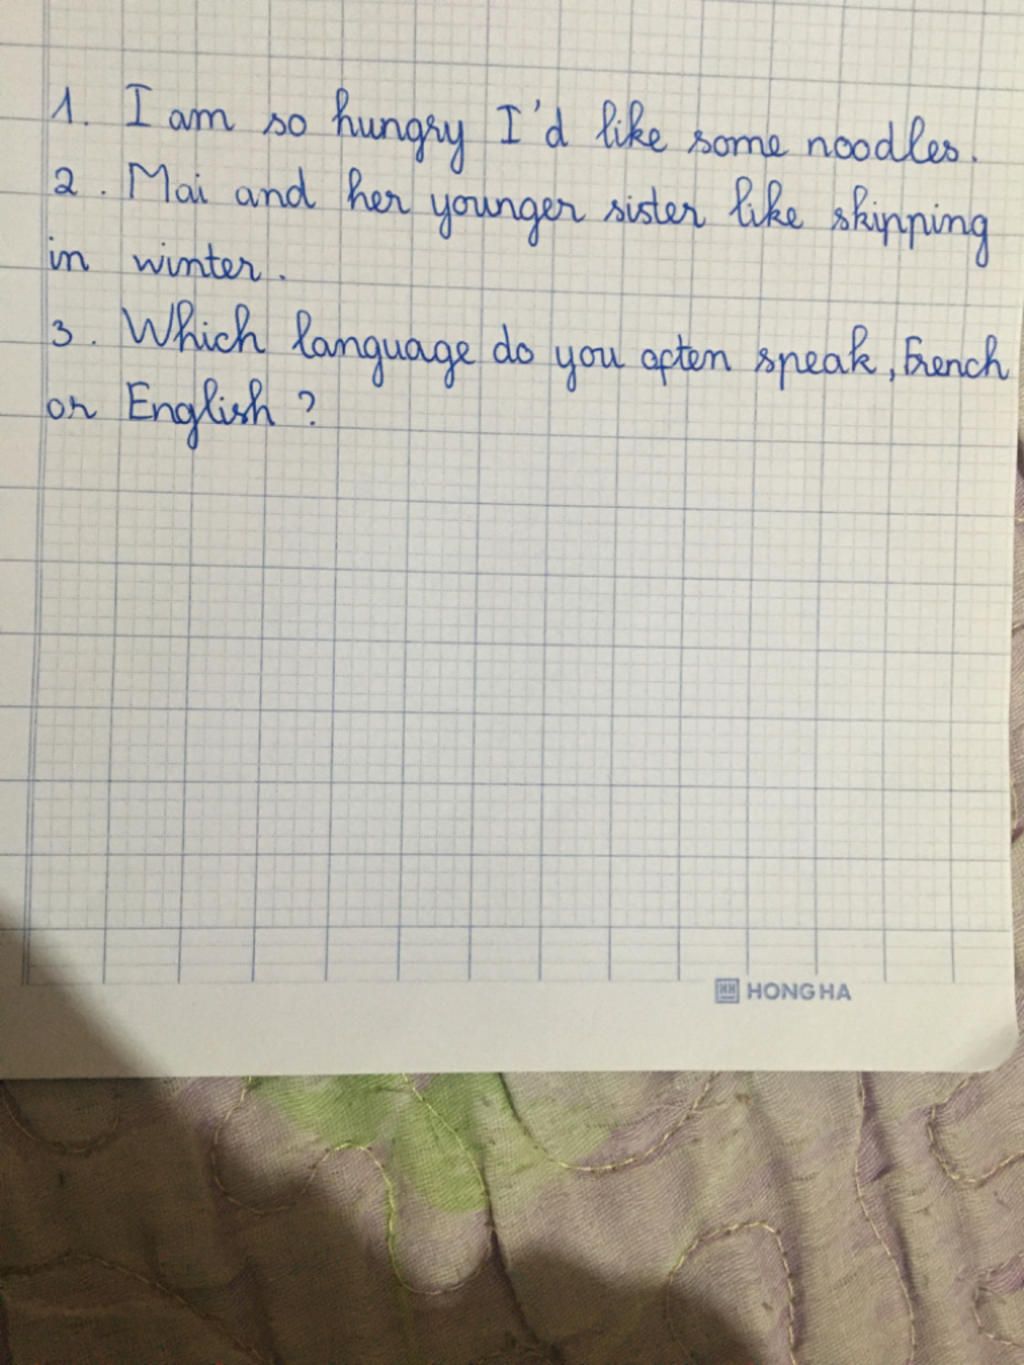 1. I am so hungry I'd like some noodles.
2. Mai and her younger sister like skipping
in winter.
3. Which language do you often speak, French
or English?
HONG HA